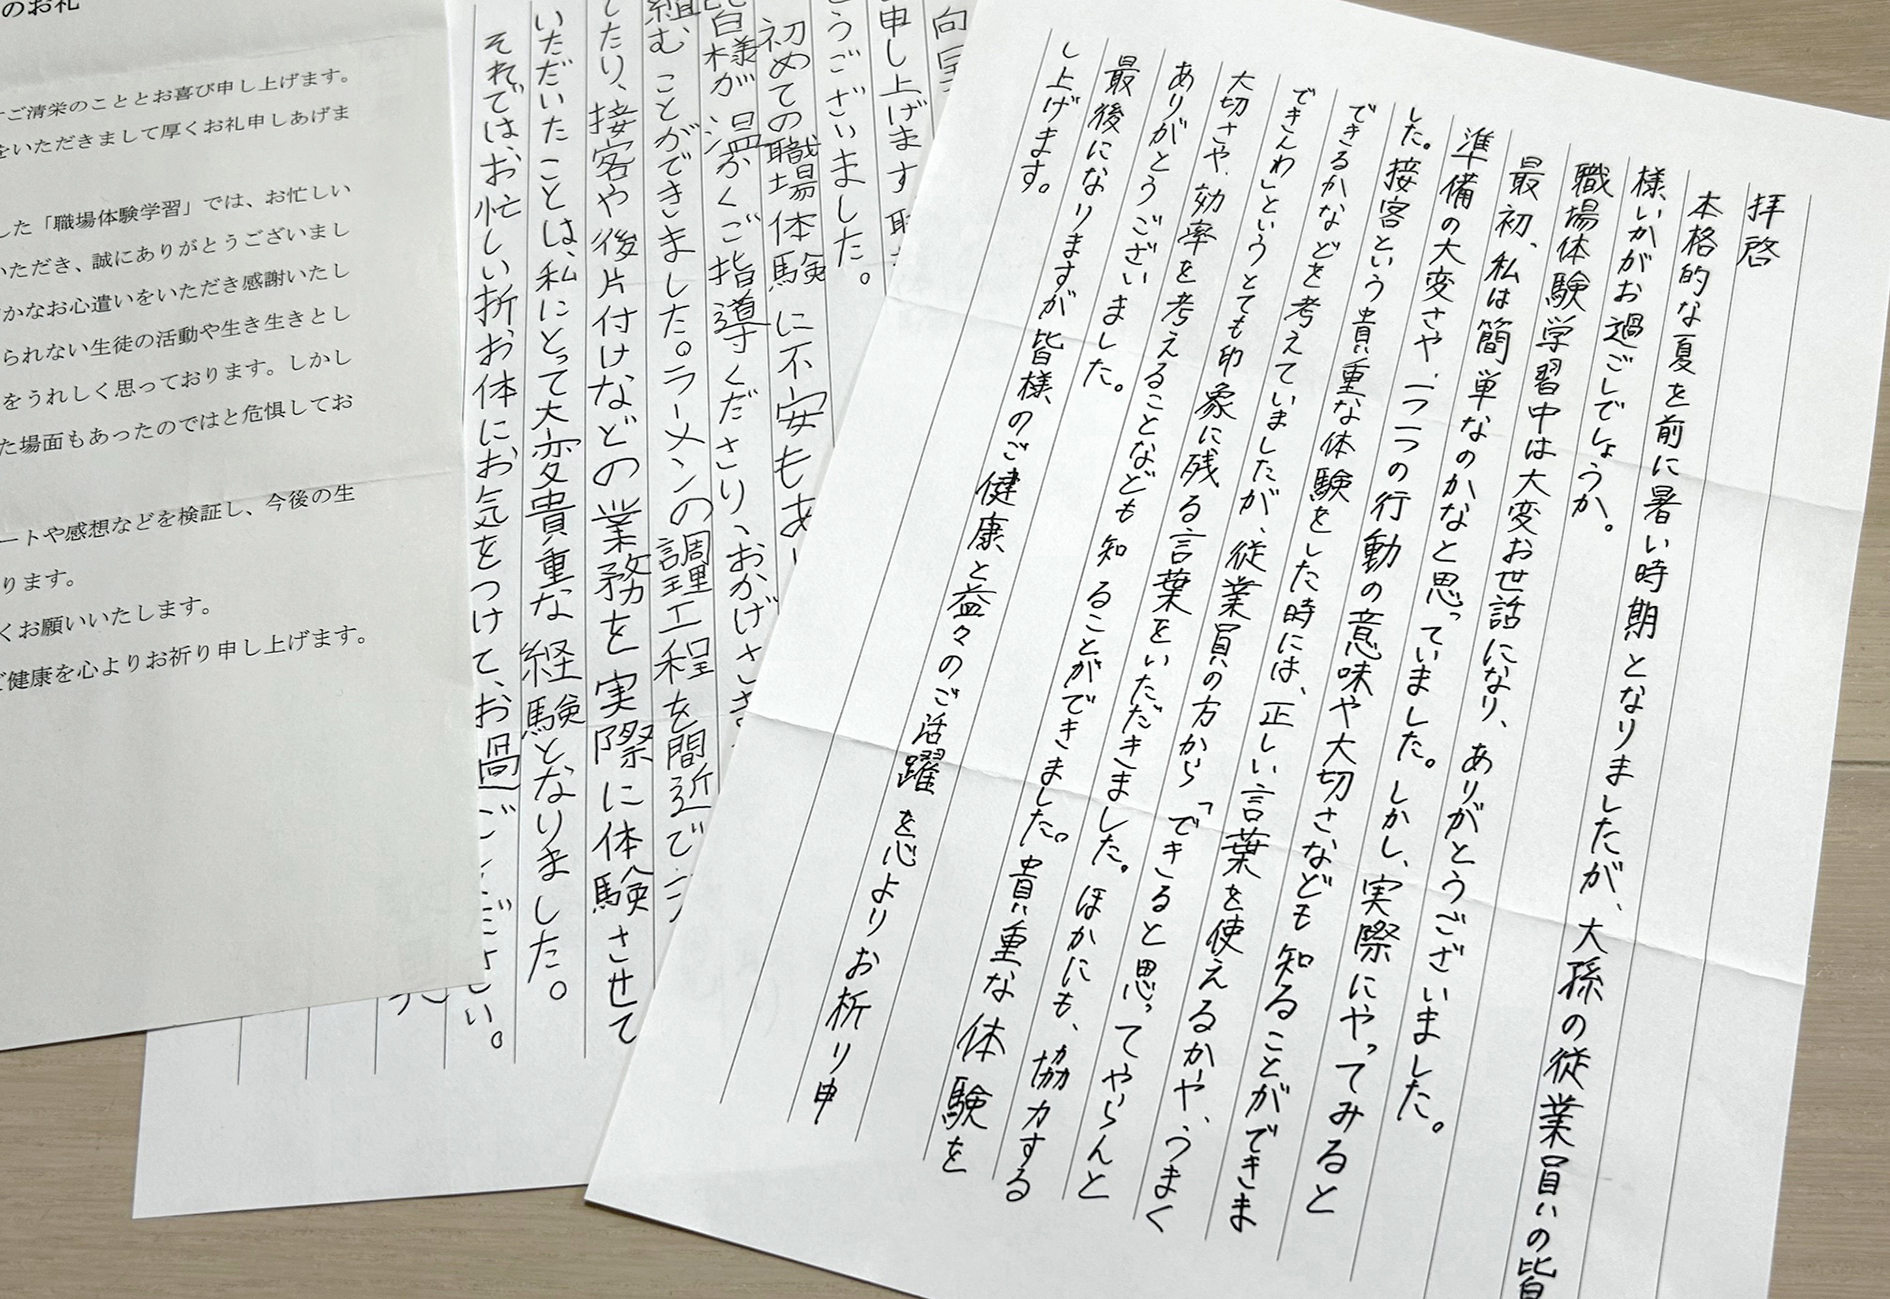 拝啓
本格的な夏を前に暑い時期となりましたが、大孫の従業員の皆
様いかがお過ごしでしょうか。
職場体験学習中は大変お世話になり、ありがとうございました。
最初、私は簡単なのかなと思っていました。しかし、実際にやってみると
準備の大変さや、一つ一つの行動の意味や大切さなども知ることができま
した。接客という貴重な体験をした時には、正しい言葉を使えるかや、うまく
できるかなどを考えていましたが、従業員の方から「できると思ってやらんと
できんわ」というとても印象に残る言葉をいただきました。ほかにも、協力する
大切さや、効率を考えることなども知ることができました。貴重な体験を
ありがとうございました。
最後になりますが皆様のご健康と益々のご活躍を心よりお祈り申
し上げます。
向
申し上げます
うございました。
初めての職場体験に不安もあ
皆様が温かくご指導くださり、おかげさま
組むことができました。ラーメンの調理工程を間近で
したり、接客や後片付けなどの業務を実際に体験させて
いただいたことは、私にとって大変貴重な経験となりました。
それでは、お忙しい折お体にお気をつけて、お過ごしください。
のお礼
すご清栄のこととお喜び申し上げます。
をいただきまして厚くお礼申しあげま
した「職場体験学習」では、お忙しい
いただき、誠にありがとうございまし
かなお心遣いをいただき感謝いたし
られない生徒の活動や生き生きとし
をうれしく思っております。しかし
た場面もあったのではと危惧してお
ートや感想などを検証し、今後の生
ります。
くお願いいたします。
ご健康を心よりお祈り申し上げます。